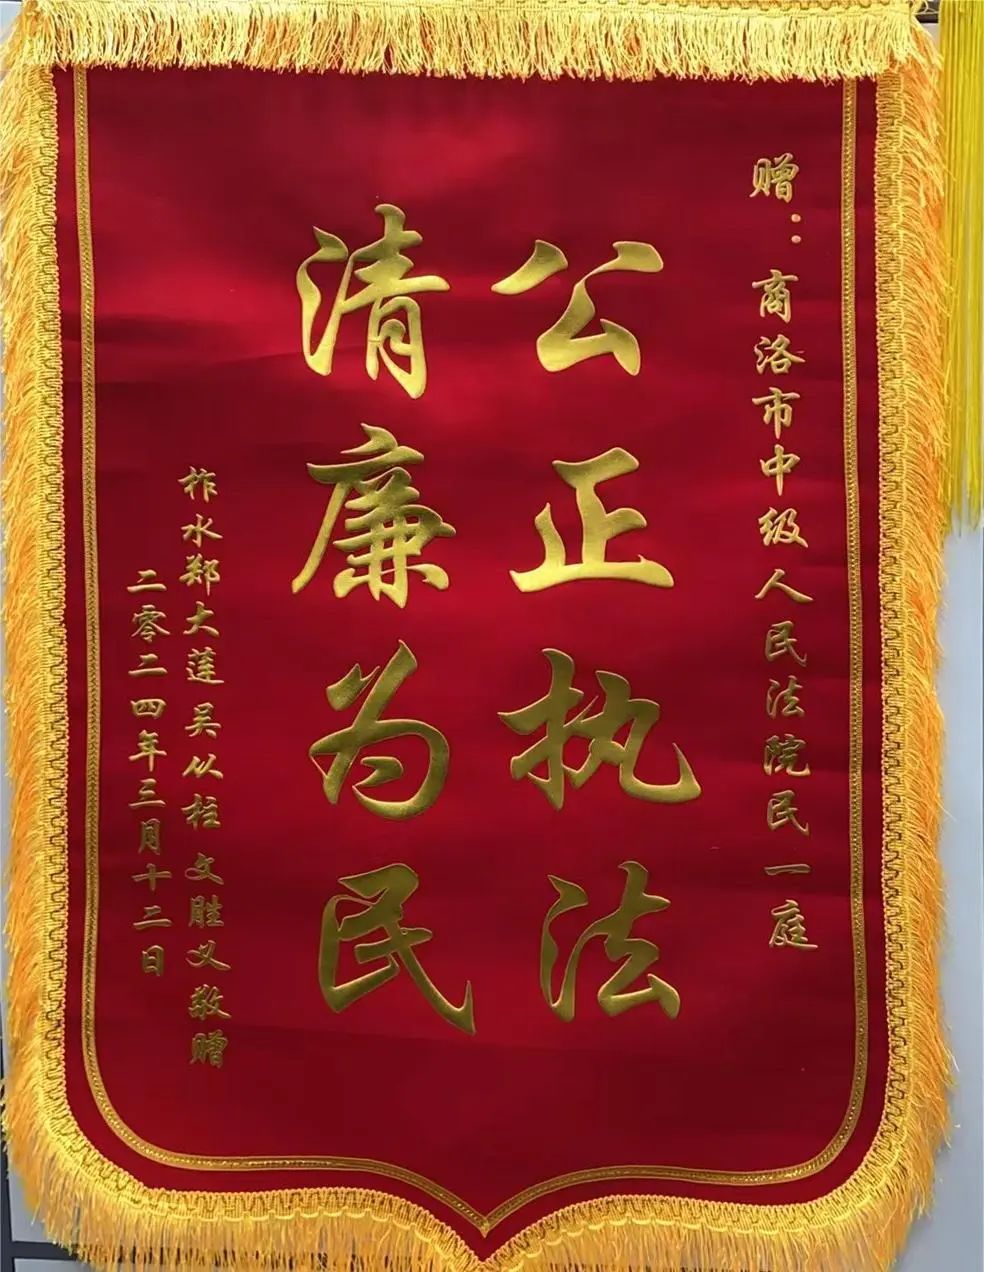 赠：商洛市中级人民法院民一庭
公正执法
清廉为民
柞水郑大莲吴从柱文胜义敬赠
二零二四年三月十二日